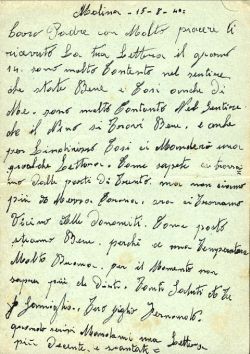 Molina - 15-8-40=
Caro Padre con Molto piacere ti
ricevuto La tua Lettera il giorno
14. sono molto Contento nel sentire
che state Bene e Cosi anche di
Me. sono molto Contento Nel Sentire
che il Nino si trova Bene, e anche
per Cosi ci Manderò una
qualche Lettera. Come sapete ci trovia
mo dalle parti di Trento. ma non siamo
più Verona. ora ci troviamo
Vicino alle donomiti. Come posto
stiamo Bene. perchè ce una Temperatura
Molto Buona. per il Momento non
saprei più che dirti. Tanti Saluti di Te
e famiglia. tuo figlio
quando scrivi Mandami una Lettera
più decente, e